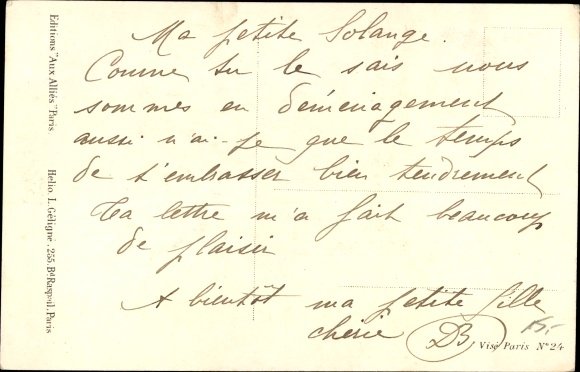 Ma petite Solange.
Comme tu le sais nous
sommes en déménagement
aussi n'ai-je que le temps
de t'embrasser bien tendrement
Ta lettre m'a fait beaucoup
de plaisir
A bientôt ma petite fille
chérie DB
Editions "Aux Alliés" Paris
Hélio L. Géligné. 255, Bd Raspail, Paris
Visé Paris No 24